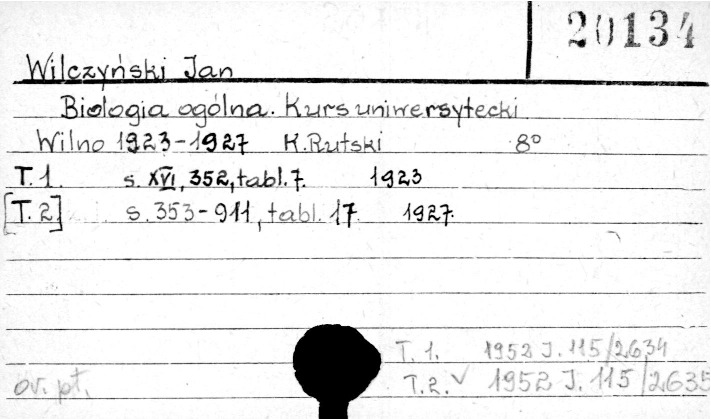 20134
Wilczyński Jan
Biologia ogólna. Kurs uniwersytecki
Wilno 1923-1927 K. Rutski 8°
T. 1. s. XVI, 352, tabl. 7. 1923
[T. 2.] s. 353-911, tabl. 17 1927.
T. 1. 1952 J. 115/2634
ov. pt. T. 2. √ 1952 J. 115/2635